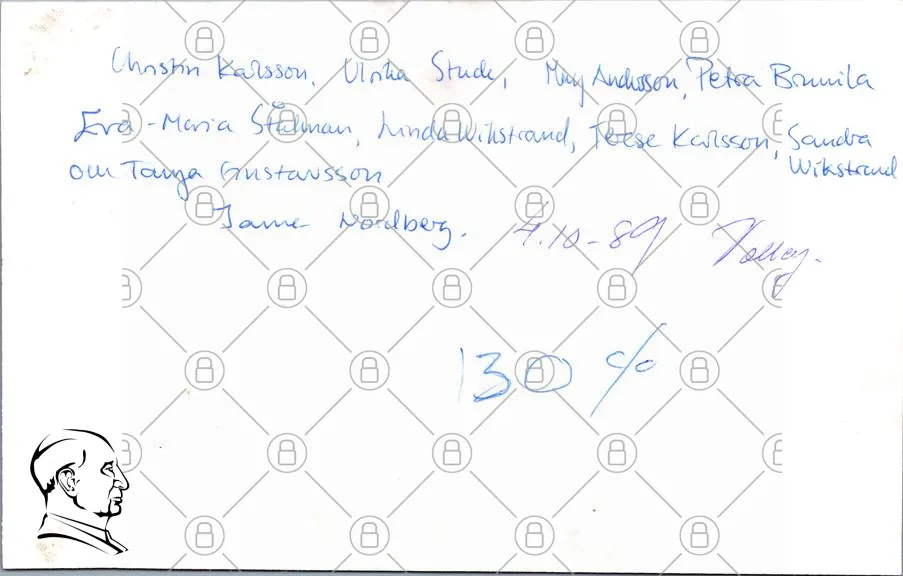 Christin Karlsson, Ulrika Stude, Andersson, Petra Brunila
Eva-Maria Stålman, Linda Wikstrand, Terese Karlsson, Sandra
Wikstrand
och Tanja Gustavsson
Nordberg. 4.10-89 Volley.
130 %